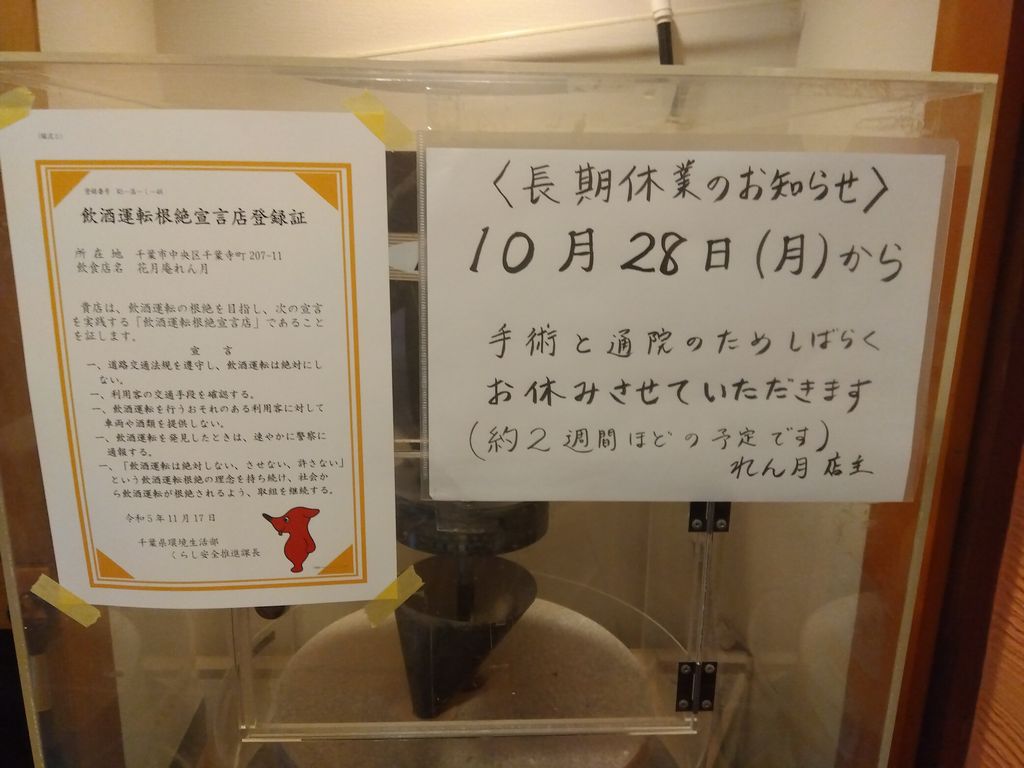 飲酒運転根絶宣言店登録証
所在地　千葉市中央区千葉寺町207-11
飲食店名　花月庵れん月
貴店は、飲酒運転の根絶を目指し、次の宣言
を実践する「飲酒運転根絶宣言店」であること
を証します。
宣　言
一、道路交通法規を遵守し、飲酒運転は絶対にし
ない。
一、利用客の交通手段を確認する。
一、飲酒運転を行うおそれのある利用客に対して
車両や酒類を提供しない。
一、飲酒運転を発見したときは、速やかに警察に
通報する。
一、「飲酒運転は絶対しない、させない、許さない」
という飲酒運転根絶の理念を持ち続け、社会か
ら飲酒運転が根絶されるよう、取組を継続する。
令和5年11月17日
千葉県環境生活部
くらし安全推進課長
〈長期休業のお知らせ〉
10月28日(月)から
手術と通院のためしばらく
お休みさせていただきます
(約2週間ほどの予定です)
れん月店主